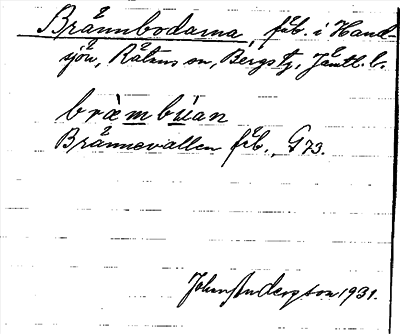 Brännbodarna, fäb. i Hand-
sjön, Rätans sn, Bergs tg, Jämtl. l.
bræ̀mbùan
Brännevallen fäb., G 73.
John Anderson 1931.